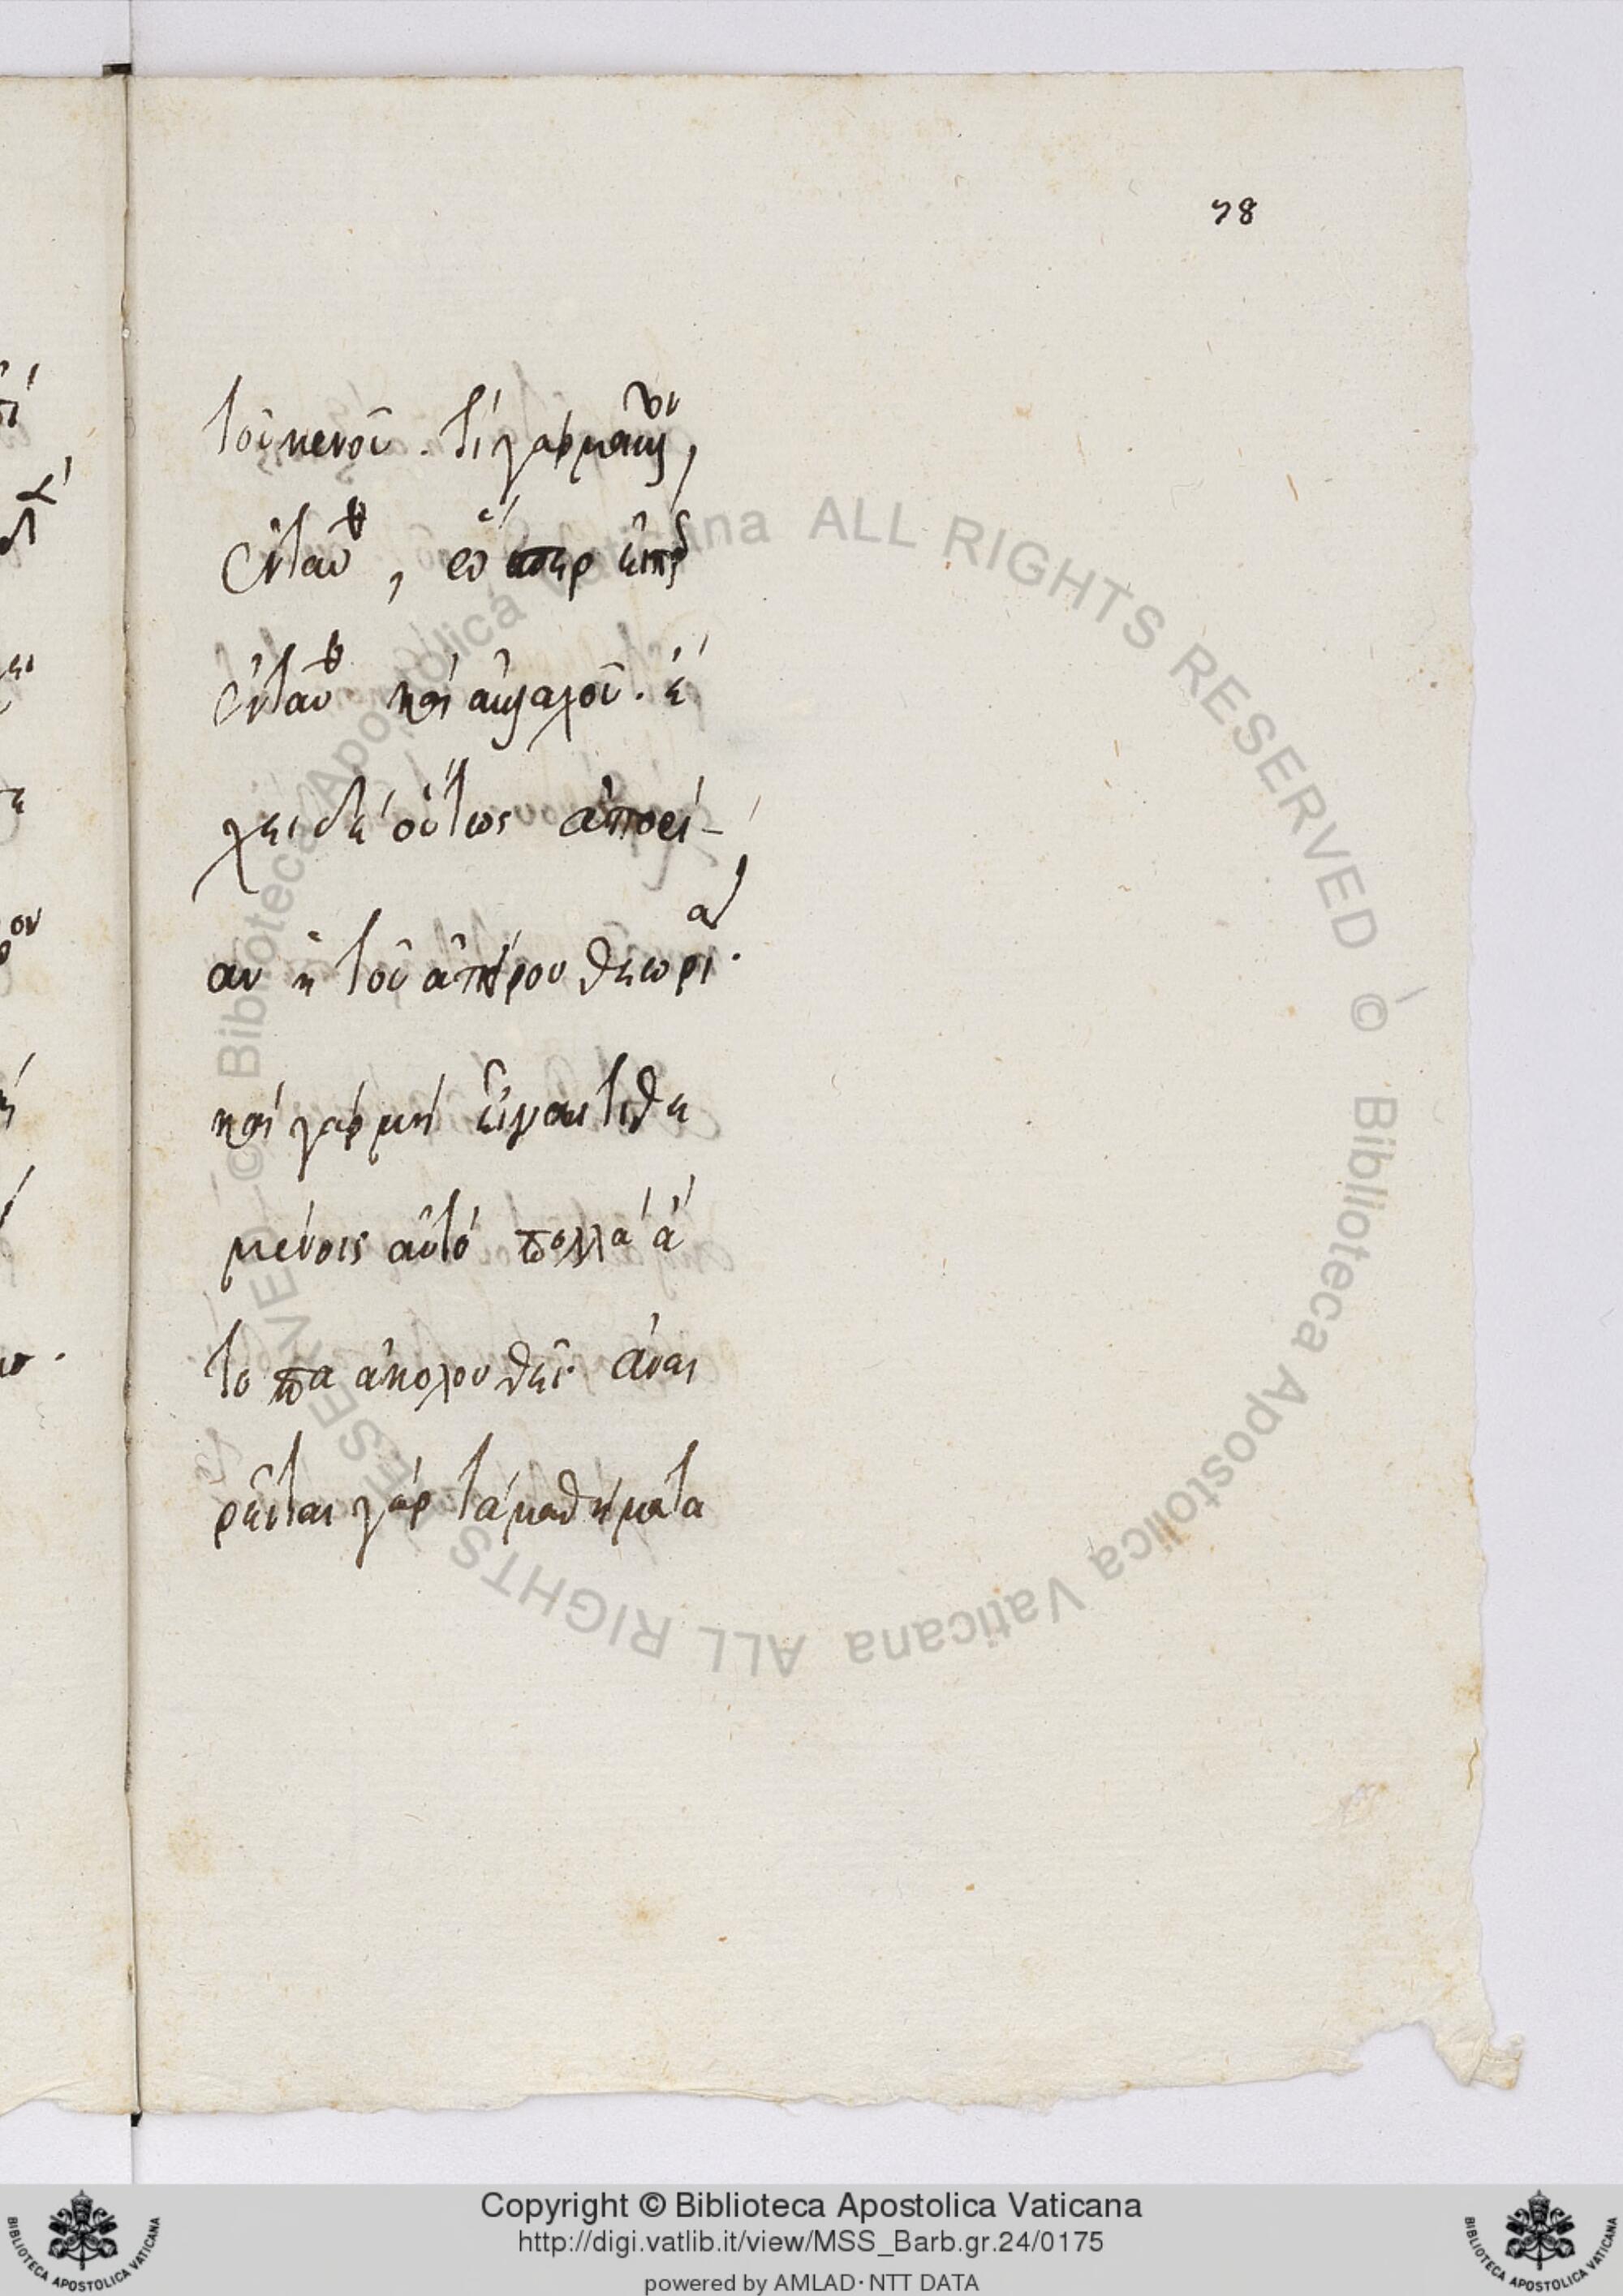 78
τοῦ κενοῦ. τί γὰρ μᾶλλον,
ἐνταῦθ, ὥσπερ εἴπερ
ἐνταῦθ καὶ ἀλλαχοῦ. ἔ
χει δὲ οὕτως ἀπορί-
αν ἡ τοῦ ἀπείρου θεωρία.
καὶ γὰρ μὴ εἶναι τιθε
μένοις αὐτὸ πολλὰ ἄ
τοπα ἀκολουθεῖ. ἀναι
ρεῖται γὰρ τὰ μαθήματα
ALL RIGHTS RESERVED © Biblioteca Apostolica Vaticana
ALL RIGHTS RESERVED © Biblioteca Apostolica Vaticana
Copyright © Biblioteca Apostolica Vaticana
http://digi.vatlib.it/view/MSS_Barb.gr.24/0175
powered by AMLAD·NTT DATA
BIBLIOTECA APOSTOLICA VATICANA
BIBLIOTECA APOSTOLICA VATICANA